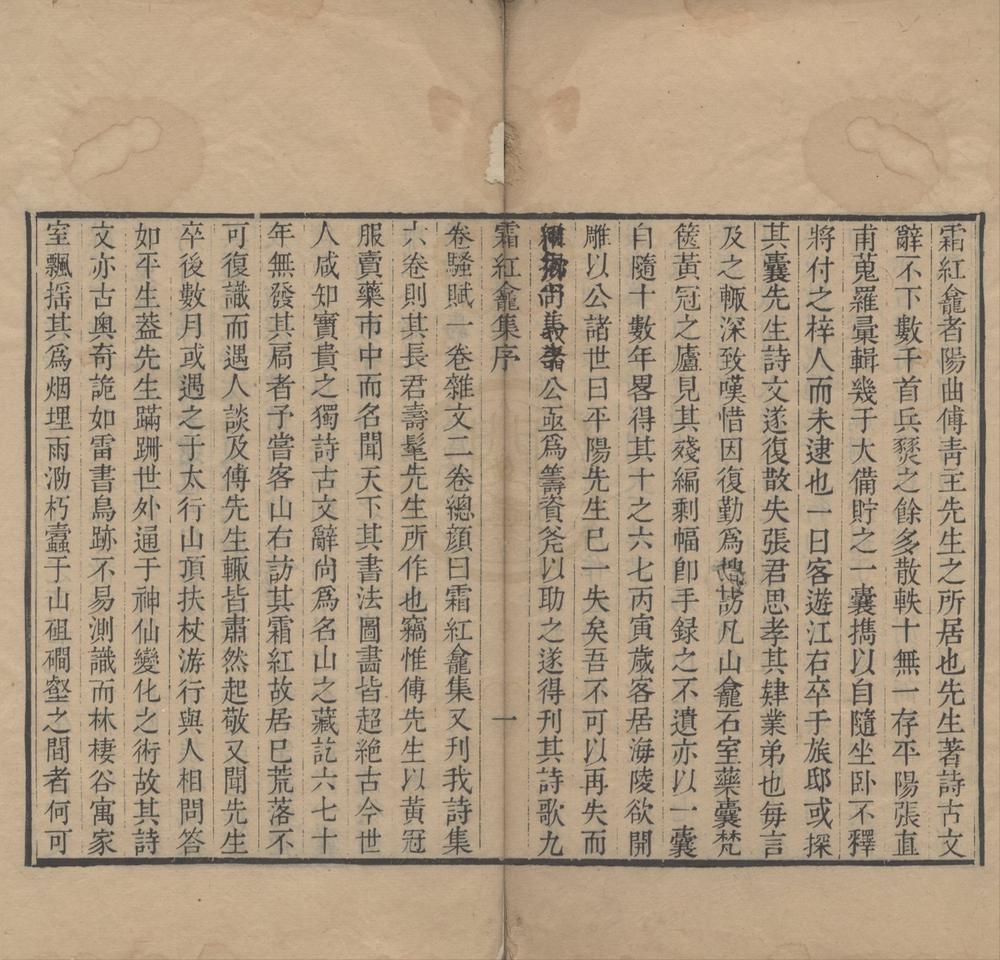 霜紅龕者陽曲傅靑主先生之所居也先生著詩古文
辭不下數千首兵燹之餘多散軼十無一存平陽張直
甫蒐羅彙輯幾于大備貯之一囊攜以自隨坐卧不釋
將付之梓人而未逮也一日客遊江右卒于旅邸或探
其囊先生詩文遂復散失張君思孝其肄業弟也每言
及之輙深致嘆惜因復勤爲搜訪凡山龕石室藥囊梵
篋黃冠之廬見其殘編剩幅卽手録之不遺亦以一囊
自隨十數年畧得其十之六七丙寅歲客居海陵欲開
雕以公諸世曰平陽先生已一失矣吾不可以再失而
公亟爲籌資斧以助之遂得刊其詩歌九
霜紅龕集序
一
卷騷賦一卷雜文二卷總顏曰霜紅龕集又刊我詩集
六卷則其長君壽髦先生所作也竊惟傅先生以黃冠
服賣藥市中而名聞天下其書法圖畵皆超絶古今世
人咸知寶貴之獨詩古文辭尙爲名山之藏訖六七十
年無發其扃者予嘗客山右訪其霜紅故居已荒落不
可復識而遇人談及傅先生輙皆肅然起敬又聞先生
卒後數月或遇之于太行山頂扶杖游行與人相問答
如平生葢先生蹣跚世外通于神仙變化之術故其詩
文亦古奧奇詭如雷書鳥跡不易測識而林棲谷寓家
室飄揺其爲烟埋雨泐朽蠧于山砠磵壑之間者何可